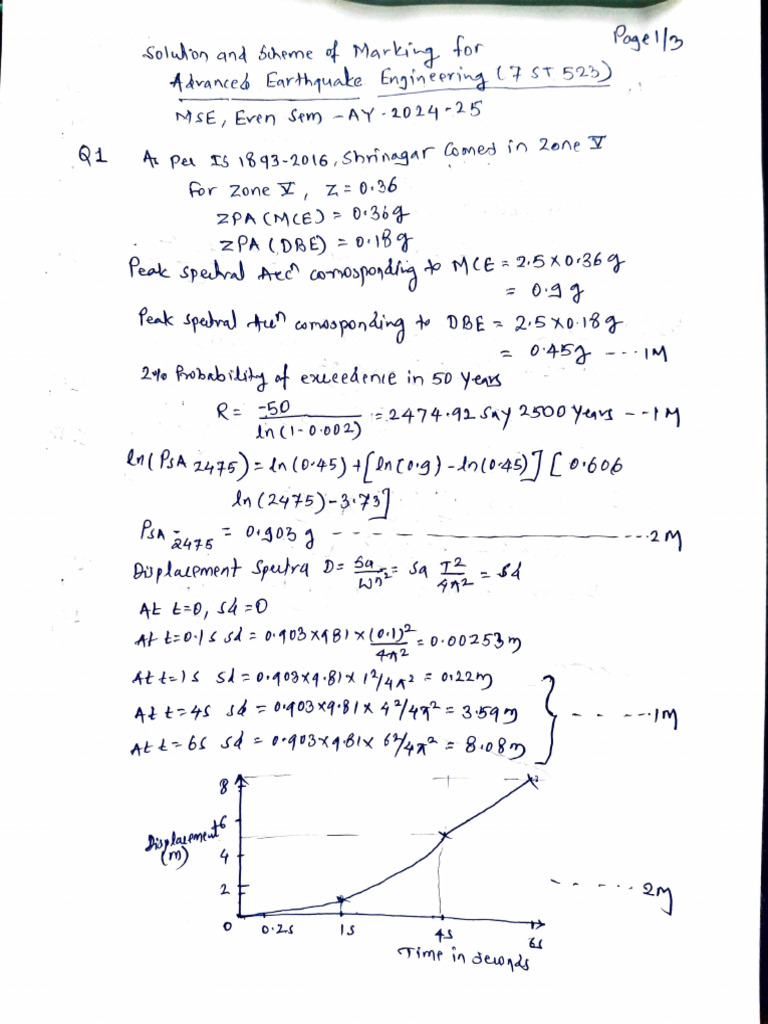 Page 1/3
Solution and Scheme of Marking for
Advanced Earthquake Engineering (7 ST 523)
MSE, Even Sem - AY - 2024-25
Q1 As per IS 1893-2016, Shrinagar Comes in Zone V
for Zone V, Z = 0.36
ZPA (MCE) = 0.36g
ZPA (DBE) = 0.18g
Peak spectral Accn corrosponding to MCE = 2.5 x 0.36 g
= 0.9 g
Peak spectral Accn corrosponding to DBE = 2.5 x 0.18 g
= 0.45g --- 1M
2% Probability of exceedence in 50 years
R = -50 / ln(1-0.002) = 2474.92 say 2500 years -- 1M
ln(PSA 2475) = ln(0.45) + [ln(0.9) - ln(0.45)] [0.606
ln(2475) - 3.73]
PSA 2475 = 0.903 g --- 2M
Displacement Spectra D = Sa/Wn² = Sa T²/4π² = Sd
At t=0, Sd = 0
At t=0.1s Sd = 0.903 x 981 x (0.1)²/4π² = 0.00253m
At t=1s Sd = 0.903 x 9.81 x 1²/4π² = 0.22m
At t=4s Sd = 0.903 x 9.81 x 4²/4π² = 3.59m } ---- 1M
At t=6s Sd = 0.903 x 9.81 x 6²/4π² = 8.08m
8
6
Displacement
(m)
4
2
----- 2M
0 0.2s 1s 4s 6s
Time in seconds